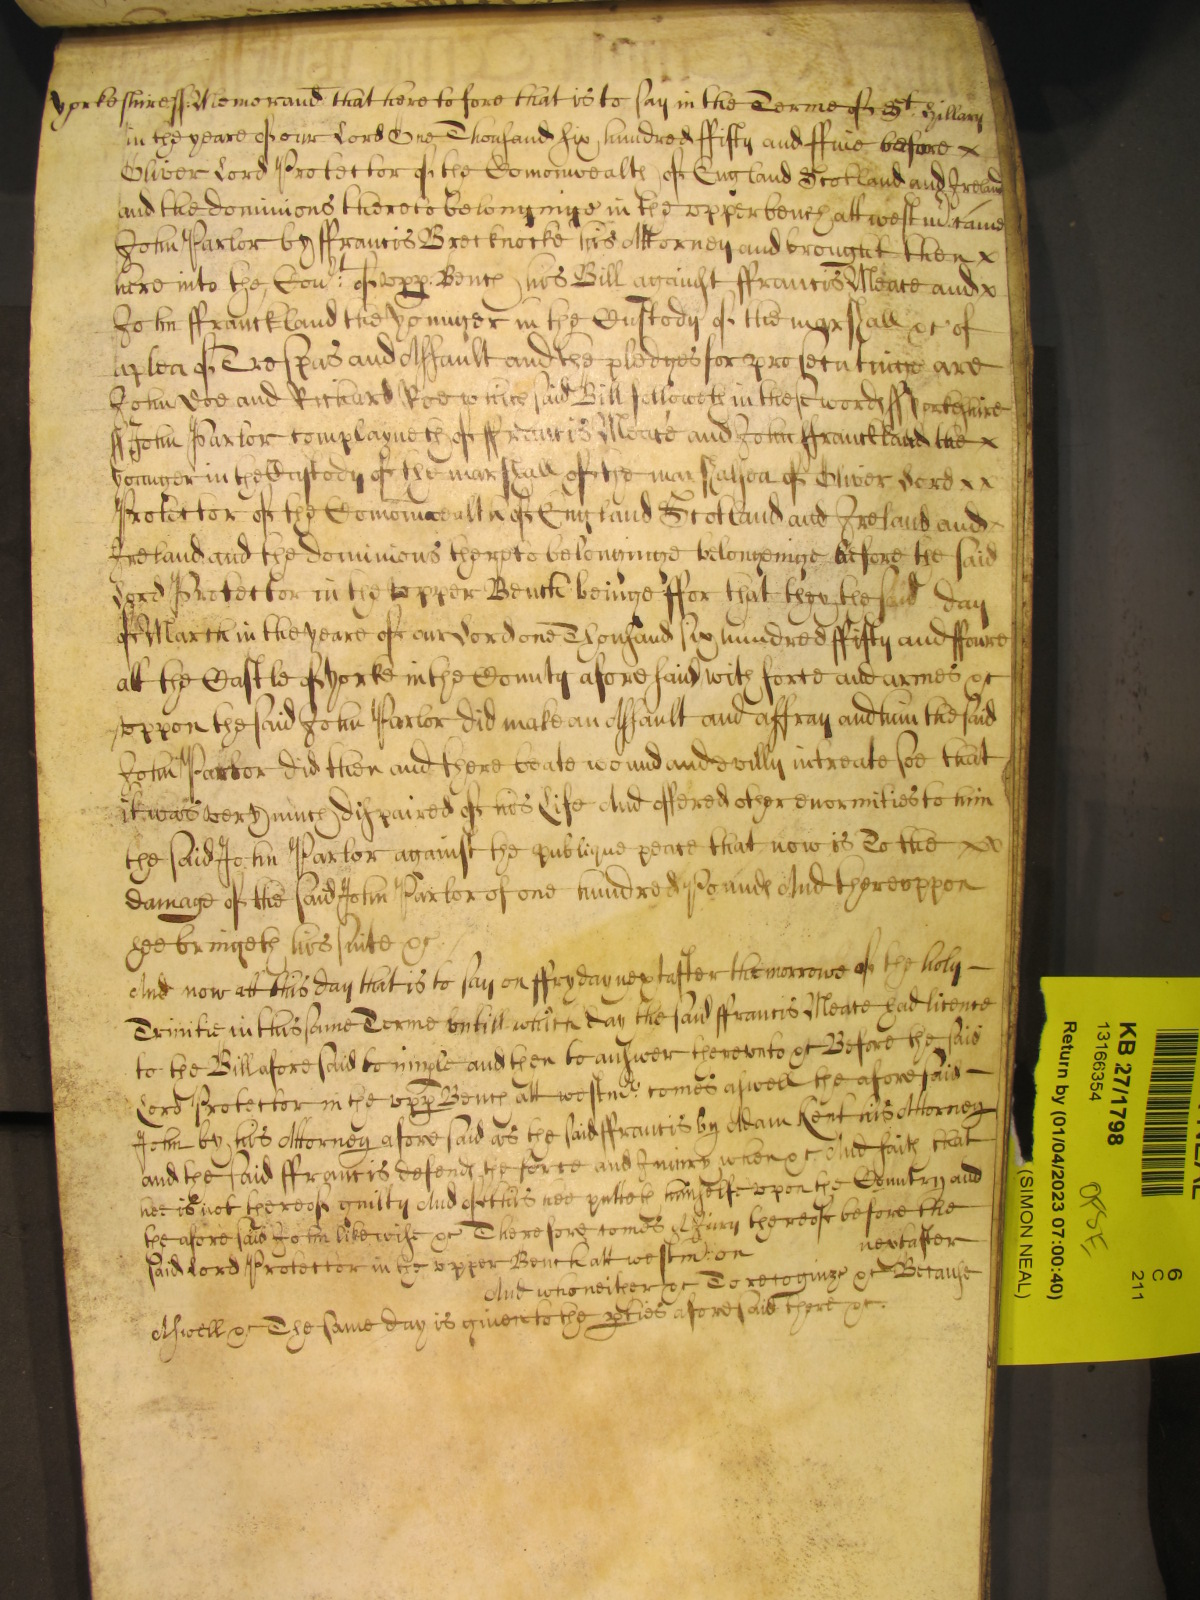 Yorkeshire ss Memorand that heretofore that is to say in the Terme of St. Hillary
in the yeare of our Lord One Thousand six hundred ffifty and ffive before x
Oliver Lord Protector of the Comonwealth of England Scotland and Ireland
and the dominions thereto belonginge in the upper bench att westmr. came
John Parlor by ffrancis Brecknocke his Attorney and brought then x
here into the Court of upp. Bench his Bill against ffrancis Meace and x
John ffranckland the younger in the Custody of the marshall &c of
a plea of Trespas and Assault and the pledges for prosecutinge are
John Doe and Richard Roe which said Bill followeth in these words ss Yorkeshire
ss John Parlor complayneth of ffrancis Meace and John ffranckland the x
younger in the Custody of the marshall of the marshalsea of Oliver Lord x x
Protector of the Comonwealth of England Scotland and Ireland and x
Ireland and the dominions thereto belonginge belonginge before the said
Lord Protector in the upper Bench beinge ffor that they the said day
of March in the yeare of our Lord one Thousand six hundred ffifty and ffoure
att the Castle of Yorke in the County aforesaid with force and armes &c
uppon the said John Parlor did make an Assault and affray and him the said
John Parlor did then and there beate wound and evilly intreate soe that
it was very much dispaired of his Life And offered other enormities to him
the said John Parlor against the publique peace that now is To the x x
damage of the said John Parlor of one hundred Pounds And thereuppon
hee bringeth his suite &c.
And now att this day that is to say on ffryday next after the morrowe of the holy
Trinitie in this same Terme untill which day the said ffrancis Meace had licence
to the Bill aforesaid to imple and then to answer thereunto &c Before the said
Lord Protector in the upp Bench att westmr. comes aswell the aforesaid
John by his Attorney aforesaid as the said ffrancis by Adam Kent his Attorney
and the said ffrancis defends the force and Iniury when &c. And saith that
hee is not thereof guilty And of this hee putteth himselfe upon the Country and
the aforesaid John likewise &c Therefore comes A Jury thereof before the
said Lord Protector in the upper Bench att westmr: on next after
And who neither &c To recoginze &c Because
Aswell &c The same day is given to the pties aforesaid there &c.
KB 27/1798
13166354
Return by (01/04/2023 07:00:40)
(SIMON NEAL)
6
C
211